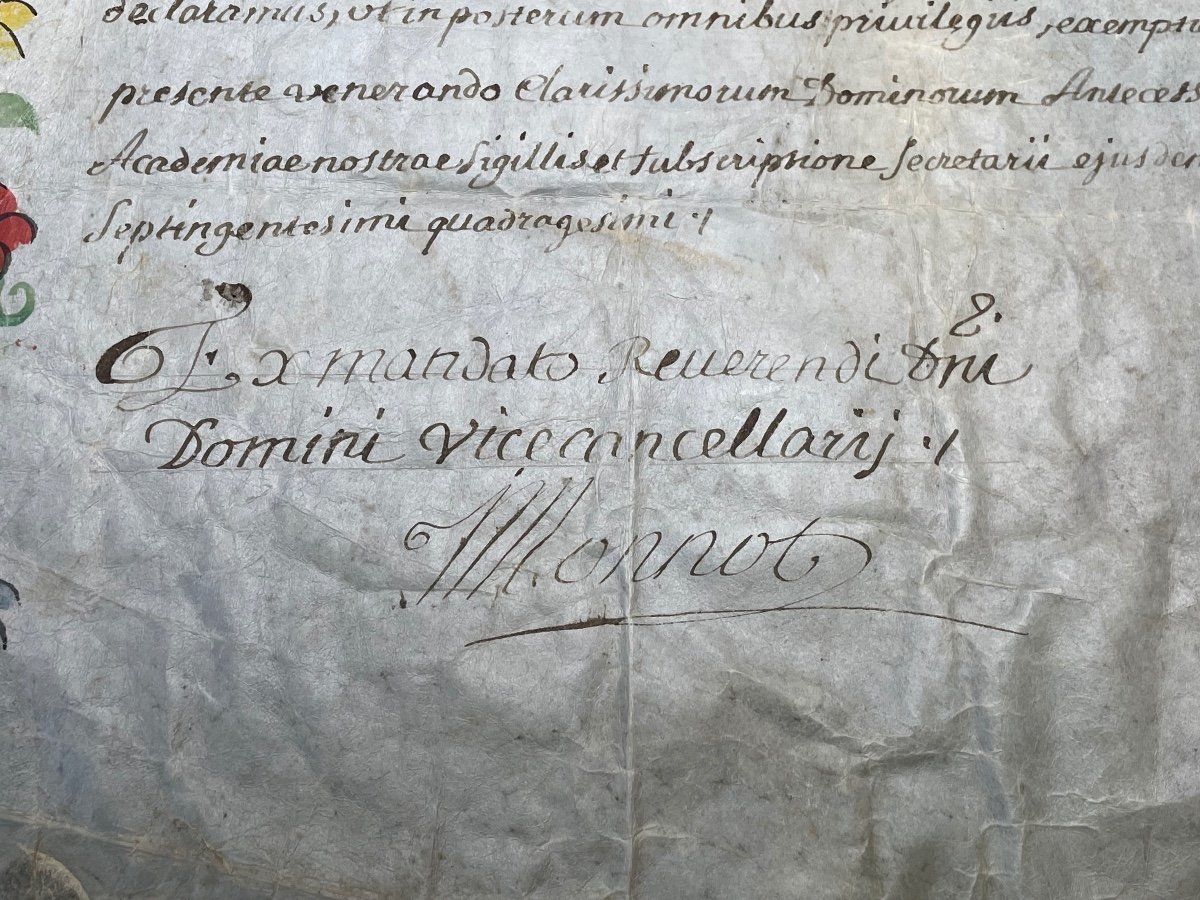 declaramus, ut in posterum omnibus privilegiis, exempti
presente venerando Clarissimorum Dominorum Antecess
Academiae nostrae sigillis et subscriptione secretarii ejusdem
septingentesimi quadragesimi ·/
Ex mandato Reuerendi Dni
Domini vicecancellarij ·/
Monnot